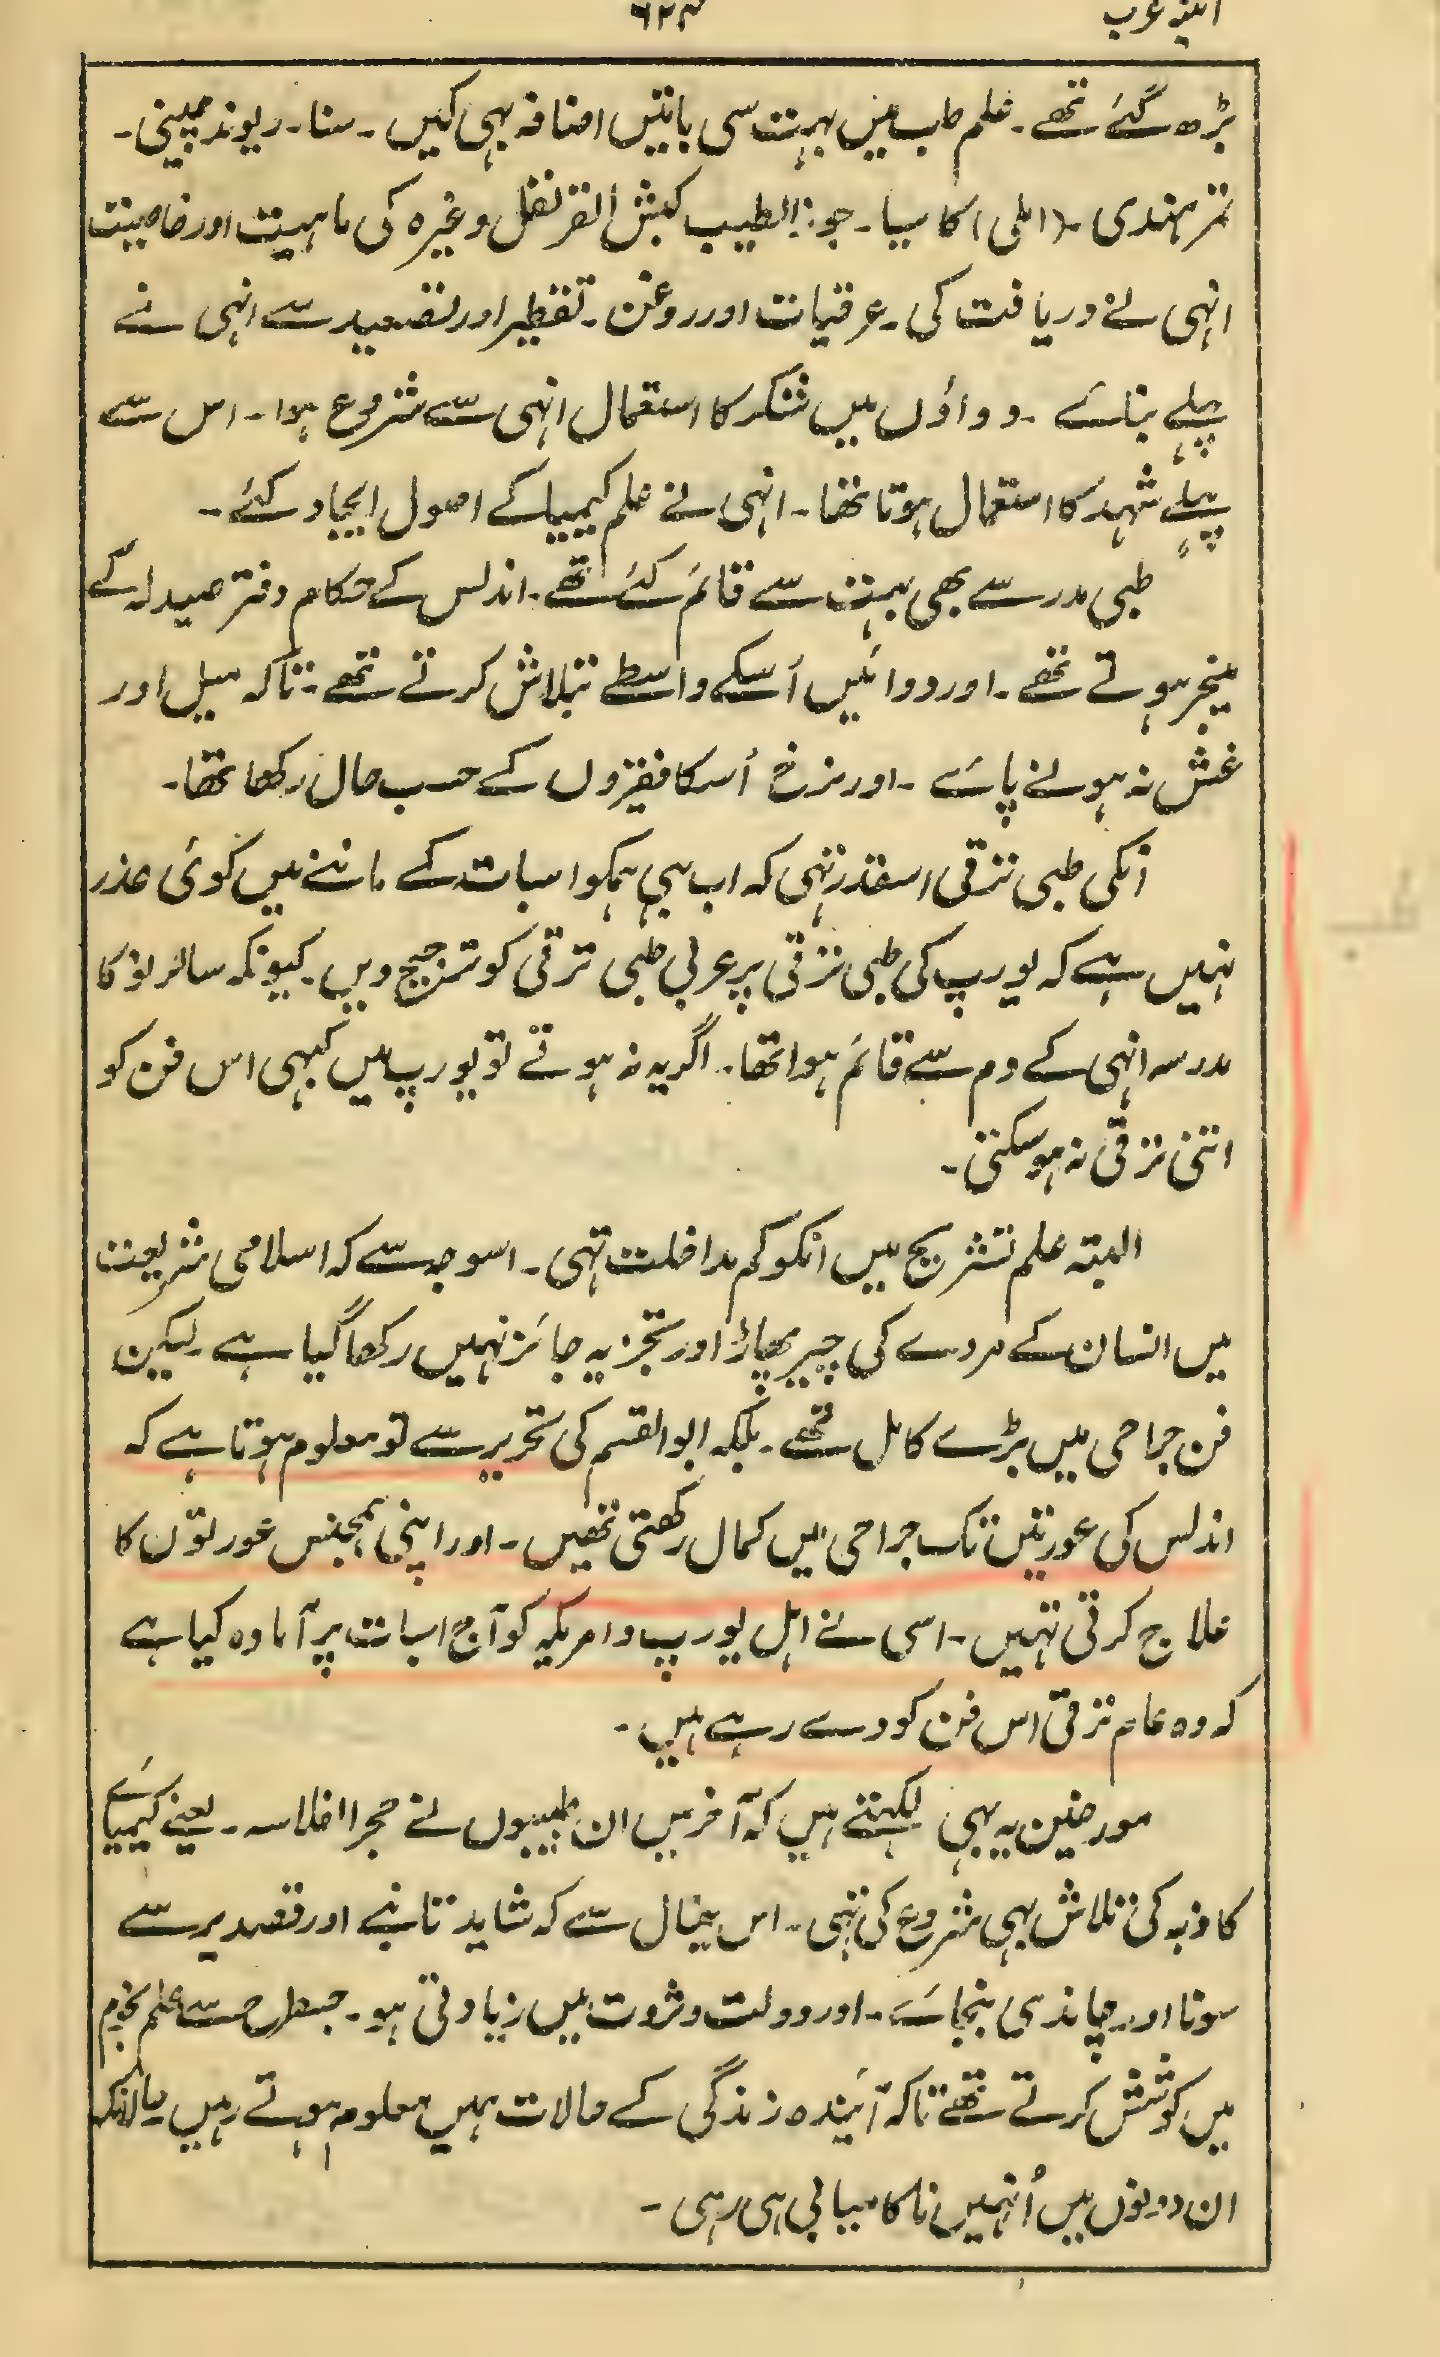 آئینہ عرب ۶۲۴
بڑھ گئے تھے۔ علم طب میں بہت سی باتیں اضافہ بہی کیں۔ سنا۔ ریوند چینی۔
تمر ہندی۔ (املی) کاسیا۔ جوز الطیب کبش القرنفل وغیرہ کی ماہیت اور خاصیت
انہی نے دریافت کی۔ عرقیات اور روغن۔ تقطیر اور تصعید سے انہی نے
پہلے بنائے۔ دواؤں میں شکر کا استعمال انہی سے شروع ہوا۔ اس سے
پہلے شہد کا استعمال ہوتا تھا۔ انہی نے علم کیمیا کے اصول ایجاد کئے۔
طبی مدرسے بھی بہت سے قائم کئے تھے۔ اندلس کے حکام دفتر صیدلہ کے
مینجر ہوتے تھے۔ اور دوائیں اُسکے واسطے تلاش کرتے تھے۔ تاکہ میل اور
غش نہ ہونے پائے۔ اور نرخ اُسکا فقیروں کے حسب حال رکھا تھا۔
انکی طبی ترقی اسقدر تہی کہ اب بہی ہمکو اسبات کے ماننے میں کوئی عذر
نہیں ہے کہ یورپ کی طبی ترقی پر عربی طبی ترقی کو ترجیح دیں۔ کیونکہ سالرنو کا
مدرسہ انہی کے دم سے قائم ہوا تھا۔ اگر یہ نہ ہوتے تو یورپ میں کبہی اس فن کو
اتنی ترقی نہ ہو سکتی۔
البتہ علم تشریح میں انکو کم مداخلت تہی۔ اسوجہ سے کہ اسلامی شریعت
میں انسان کے مردے کی چیر پھاڑ اور تجزیہ جائز نہیں رکھا گیا ہے۔ لیکن
فن جراحی میں بڑے کامل تھے۔ بلکہ ابو القسم کی تحریر سے تو معلوم ہوتا ہے کہ
اندلس کی عورتیں تک جراحی میں کمال رکھتی تھیں۔ اور اپنی ہمجنس عورتوں کا
علاج کرتی تہیں۔ اسی نے اہل یورپ و امریکہ کو آج اسبات پر آمادہ کیا ہے
کہ وہ عام ترقی اس فن کو دے رہے ہیں۔
مورخین یہ بہی لکہتے ہیں کہ آخر میں ان طبیبوں نے حجر افلاسہ۔ یعنے کیمیائے
کاذبہ کی تلاش بہی شروع کی تہی۔ اس خیال سے کہ شاید تانبے اور قصدیر سے
سونا اور چاندی بنجائے۔ اور دولت و ثروت میں زیادتی ہو۔ جسطرح سے علم نجوم
میں کوشش کرتے تھے تاکہ آئیندہ زندگی کے حالات ہمیں معلوم ہوتے رہیں حالانکہ
ان دونوں میں اُنہیں ناکامیابی ہی رہی۔